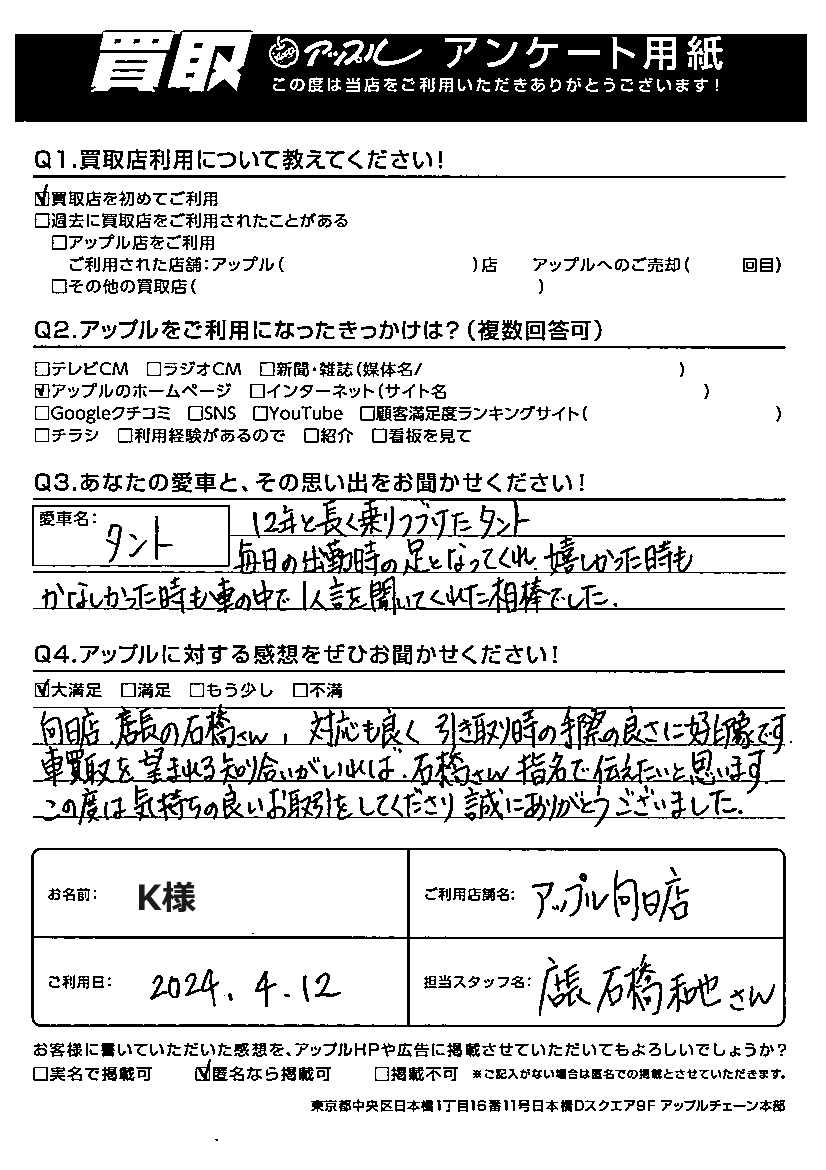 買取 アップル アンケート用紙
この度は当店をご利用いただきありがとうございます!
Q1.買取店利用について教えてください!
☑買取店を初めてご利用
□過去に買取店をご利用されたことがある
□アップル店をご利用
ご利用された店舗:アップル( )店 アップルへのご売却( 回目)
□その他の買取店( )
Q2.アップルをご利用になったきっかけは?(複数回答可)
□テレビCM □ラジオCM □新聞・雑誌(媒体名/ )
☑アップルのホームページ □インターネット(サイト名 )
□Googleクチコミ □SNS □YouTube □顧客満足度ランキングサイト( )
□チラシ □利用経験があるので □紹介 □看板を見て
Q3.あなたの愛車と、その思い出をお聞かせください!
愛車名: タント
12年と長く乗りつづけたタント
毎日の出勤時の足となってくれ、嬉しかった時も
かなしかった時も車の中で1人言を聞いてくれた相棒でした.
Q4.アップルに対する感想をぜひお聞かせください!
☑大満足 □満足 □もう少し □不満
向日店、店長の石橋さん、対応も良く 引き取り時の手際の良さに好印象です.
車買取を望まれる知り合いがいれば、石橋さん指名で伝えたいと思います.
この度は気持ちの良いお取引をしてくださり誠にありがとうございました.
お名前: K様
ご利用店舗名: アップル向日店
ご利用日: 2024.4.12
担当スタッフ名: 店長 石橋和也さん
お客様に書いていただいた感想を、アップルHPや広告に掲載させていただいてもよろしいでしょうか?
□実名で掲載可 ☑匿名なら掲載可 □掲載不可 ※ご記入がない場合は匿名での掲載とさせていただきます。
東京都中央区日本橋1丁目16番11号日本橋Dスクエア9F アップルチェーン本部